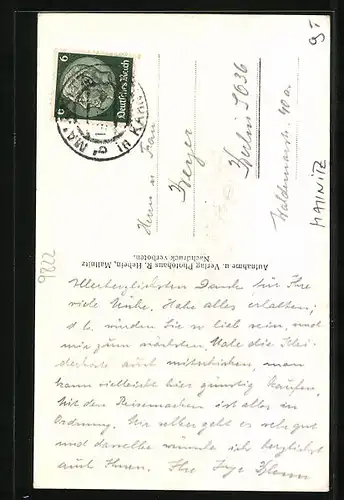 Herrn u. Frau
Beyer
Berlin S O 36
Waldemarstr. 40 a.
MALLNITZ
9822
6
Deutsches Reich
6
Aufnahme u. Verlag Photohaus R. Hebein, Mallnitz
Nachdruck verboten.
Allerherzlichsten Dank für Ihre
viele Mühe. Habe alles erhalten;
würden Sie so lieb sein, und
mir zum nächsten Male die Klei-
derkarte auch mitschicken, man
kann vielleicht hier günstig kaufen.
Mit den Reisemarken ist alles in
Ordnung. Mir selber geht es sehr gut
und dasselbe wünsche ich herzlichst
auch Ihnen. Ihre Inge